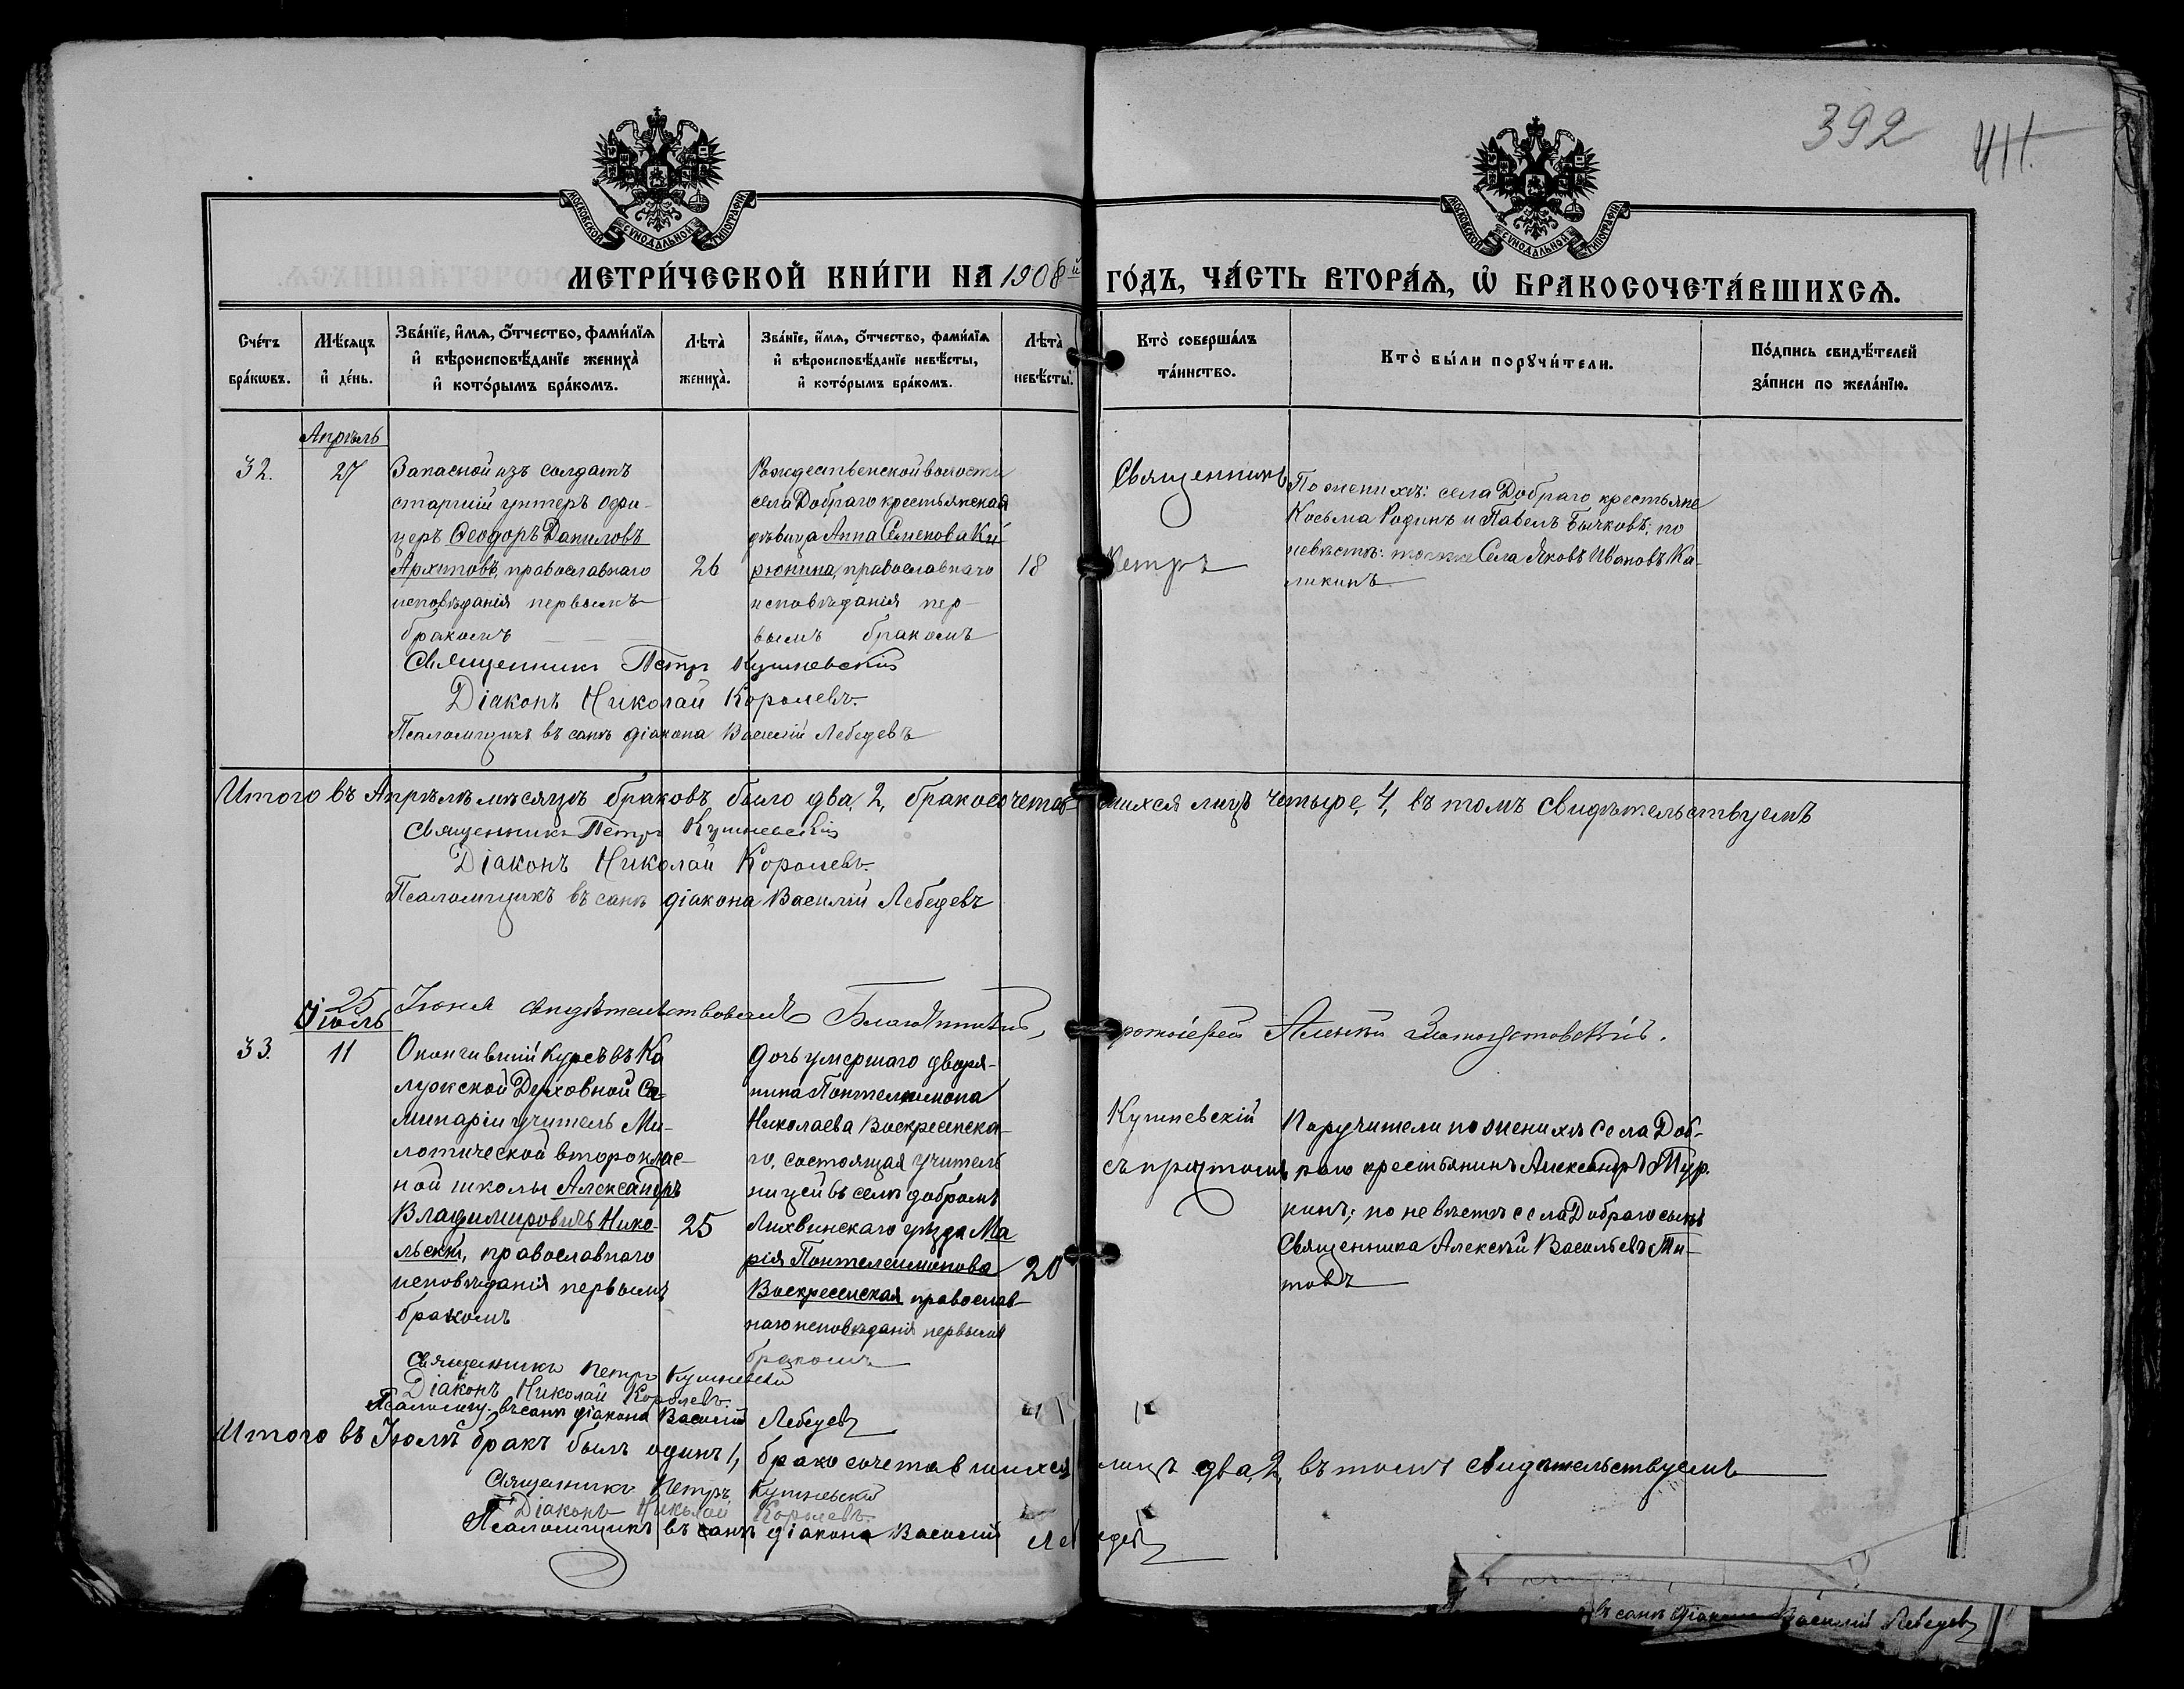 392
МОСКОВСКОЙ СѴНОДАЛЬНОЙ ТИПОГРАФІИ
МОСКОВСКОЙ СѴНОДАЛЬНОЙ ТИПОГРАФІИ
МЕТРИ́ЧЕСКОЙ КНИ́ГИ НА 1908й ГО́ДЪ, ЧА́СТЬ ВТОРА́Ѧ, Ѡ БРАКОСОЧЕТА́ВШИХСѦ.
Сче́тъ бра́кѡвъ.
Мѣ́сяцъ и де́нь.
Зва́нїе, и́мѧ, ѻ́тчество, фами́лїѧ и вѣроисповѣ́данїе жениха̀ и кото́рымъ бра́комъ.
Лѣта̀ жениха̀.
Зва́нїе, и́мѧ, ѻ́тчество, фами́лїѧ и вѣроисповѣ́данїе невѣ́сты, и кото́рымъ бра́комъ.
Лѣта̀ невѣ́сты.
Кто̀ соверша́лъ та́инство.
Кто̀ бы́ли порꙋчи́тели.
По́дпись свидѣ́телей за́писи по жела́нїю.
Апрѣль
32.
27
Запасной изъ солдатъ
старшій унтеръ офи-
церъ Ѳеодоръ Даниловъ
Архитовъ, православнаго
исповѣданія первымъ
бракомъ
26
Рождественской волости
села Добраго крестьянская
дѣвица Анна Семенова Ки-
рюнина, православнаго
исповѣданія пер-
вымъ бракомъ
18
Священникъ
Петръ
По женихѣ: села Добраго крестьяне
Косьма Родинъ и Павелъ Бычковъ; по
невѣстѣ: того же Села Яковъ Ивановъ Ка-
ликинъ
Священникъ Петръ Кушневскій
Діаконъ Николай Королевъ.
Псаломщикъ въ санѣ діакона Василій Лебедевъ
Итого въ Апрѣлѣ мѣсяцѣ браковъ было два, 2, бракосочетавшихся лицъ четыре, 4, въ томъ свидѣтельствуемъ
Священникъ Петръ Кушневскій
Діаконъ Николай Королевъ.
Псаломщикъ въ санѣ діакона Василій Лебедевъ
25 Іюня свидѣтельствовалъ Благочинный, Протоіерей
Іюль
33.
11
Окончившій Курсъ въ Ка
лужской Духовной Се-
минаріи учитель Ми-
лотической второклас-
ной школы Александръ
Владимировичъ Нико-
льскій, православнаго
исповѣданія первымъ
бракомъ
25
дочь умершаго дворя-
нина Пантелеимона
Николаева Воскресенска-
го, состоящая учитель
ницей въ селѣ добромъ
Лихвинскаго уѣзда Ма
рія Пантелеимонова
Воскресенская православ-
наго исповѣданія первымъ
бракомъ
20
Кушневскій
съ причтомъ
Поручители по женихѣ села Доб-
раго крестьянинъ Александръ Мур.
кинъ; по невѣстѣ села Добраго сынъ
Священника Алексѣй Васильевъ Ти-
товъ
Священникъ Петръ Кушневскій
Діаконъ Николай Королевъ.
Псаломщ. въ санѣ діакона Василій Лебедевъ
Итого въ Іюлѣ бракъ былъ одинъ 1, бракосочетавшихся лицъ два, 2, въ томъ свидѣтельствуемъ
Священникъ Петръ Кушневскій
Діаконъ Николай Королевъ.
Псаломщикъ въ санѣ діакона Василій Лебедевъ
въ санѣ діакона Василій Лебедевъ